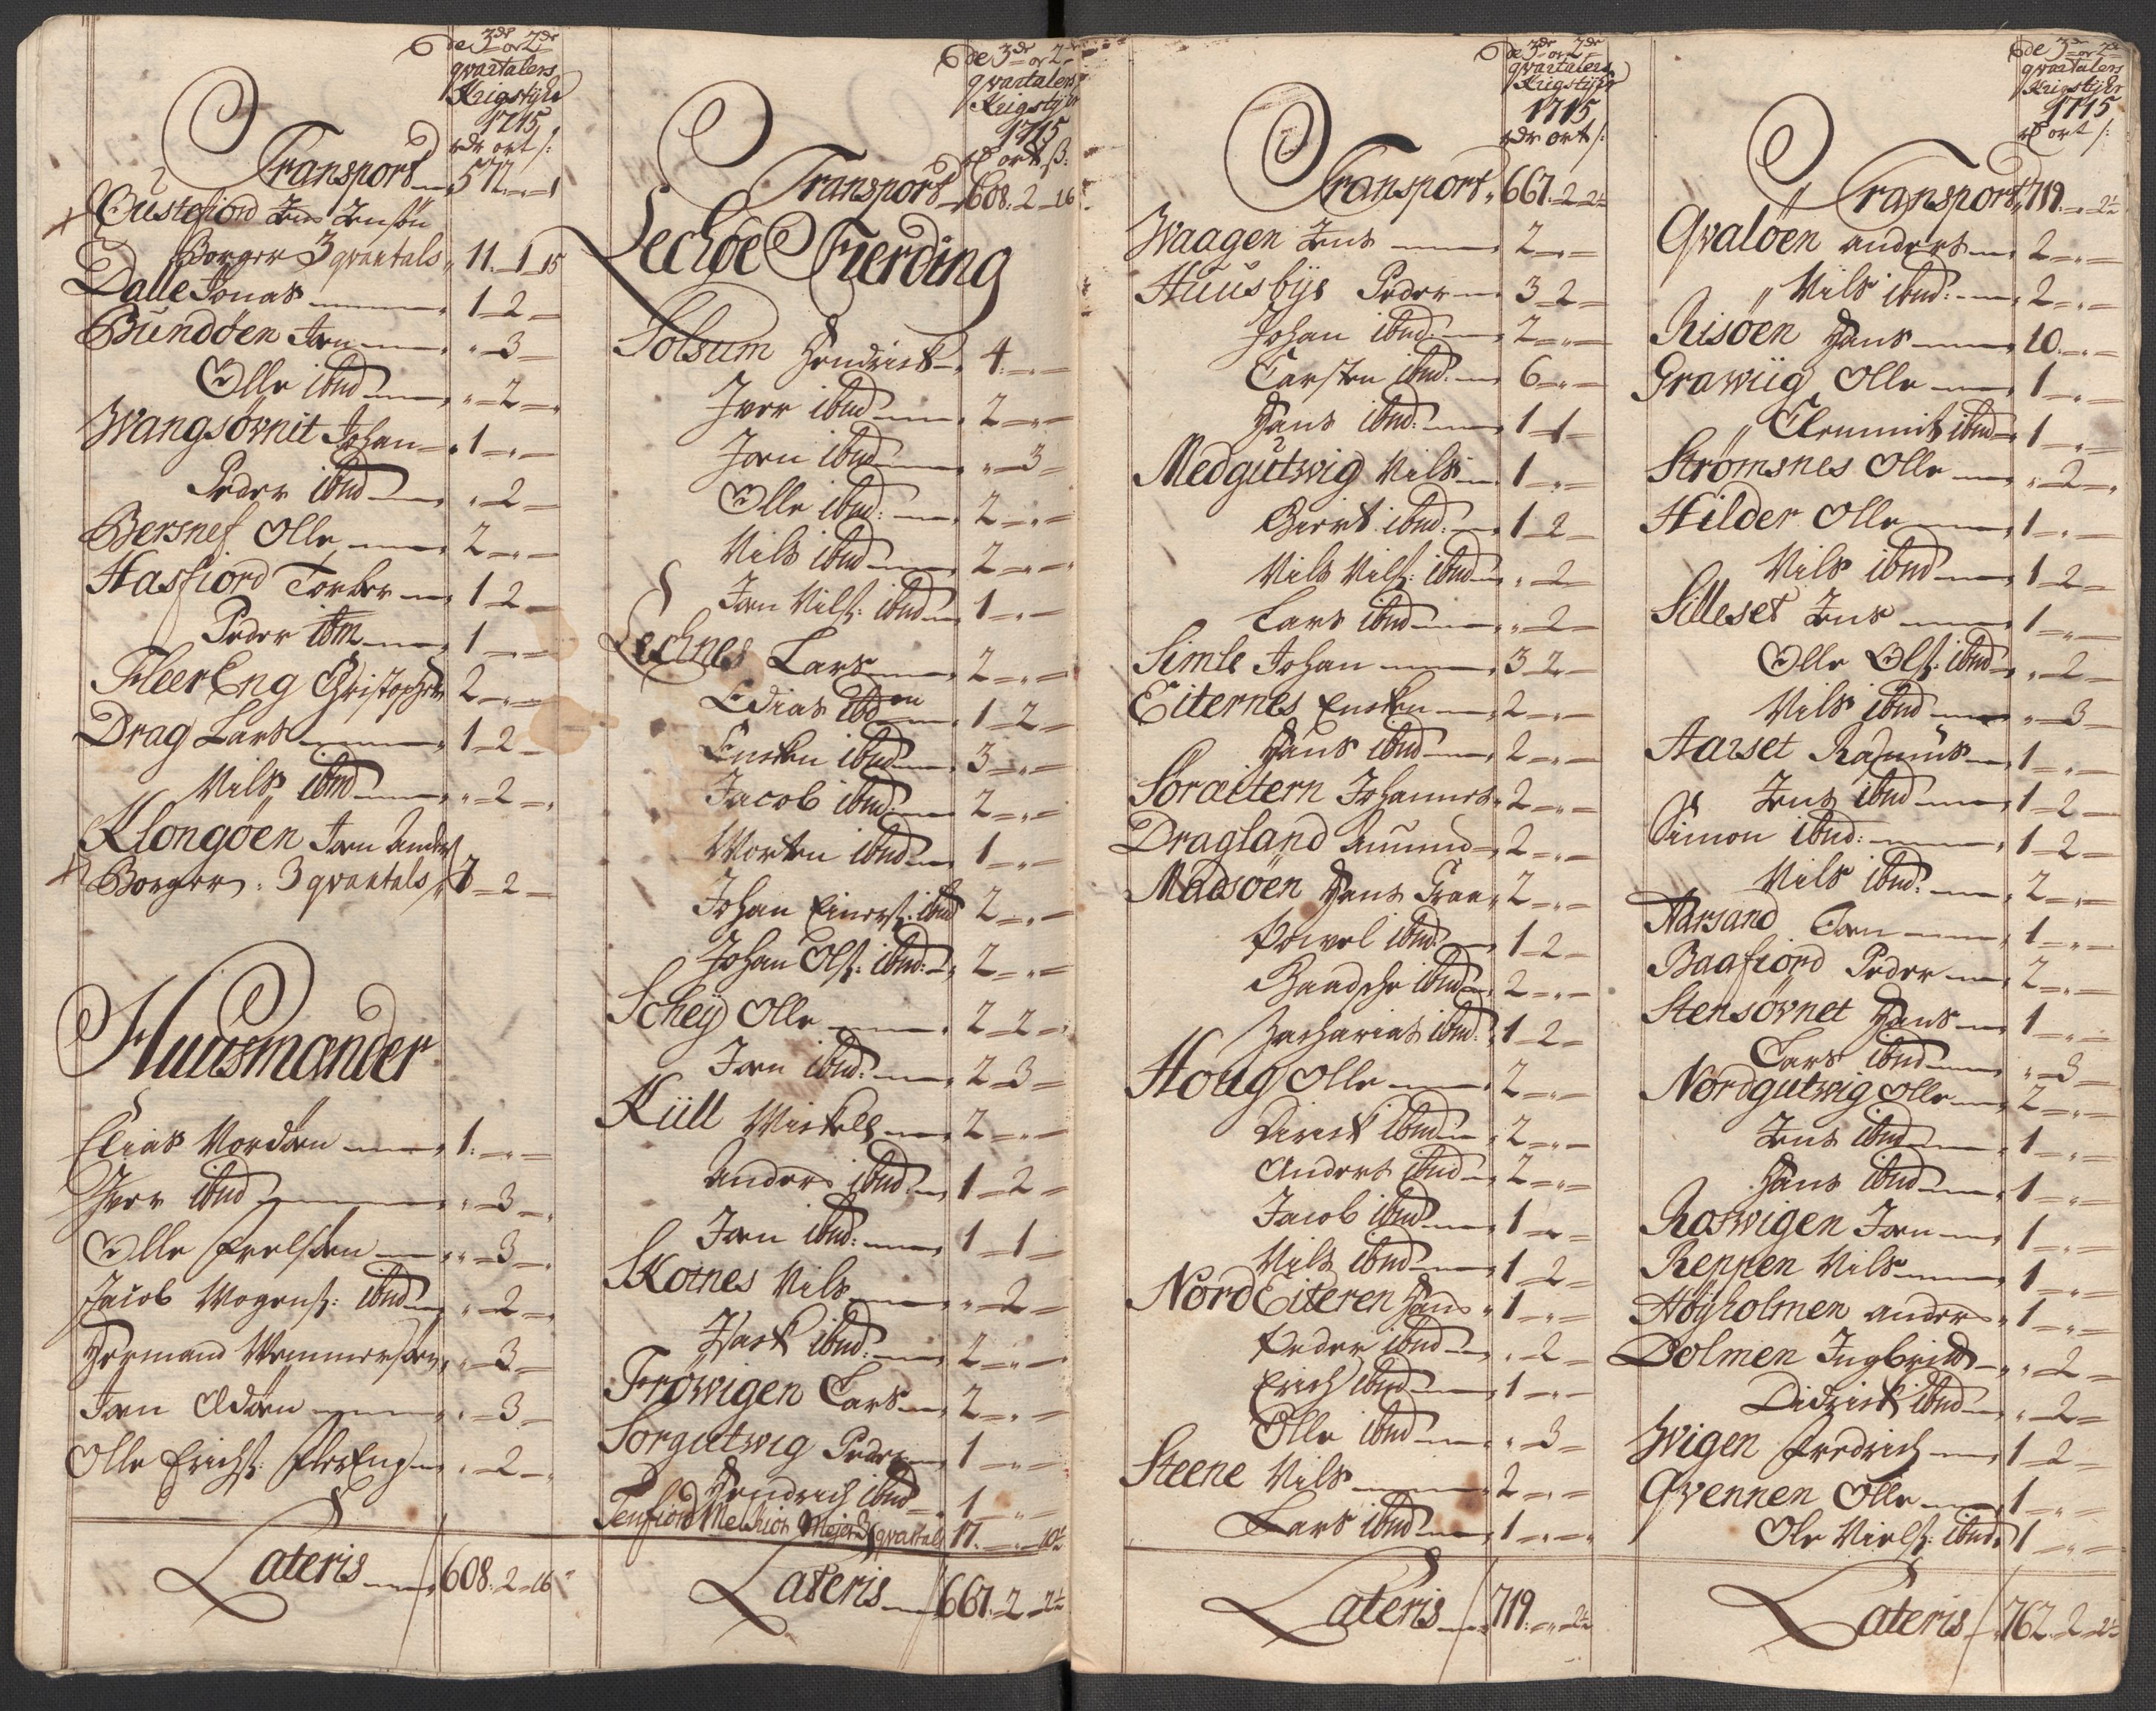 de 3de or 2de
qvartalers
Krigstijhr
1715
rdr ort s:
Transport 572 - " - 1
Øustefiord Jens Jensøn
Borger 3 qvartals 11 - 1 - 15
Dalle Jonas 1 - 2 -
Bundøen Jon " - 3 -
Olle ibnd " - 2 - "
Wangsøvnit Johan 1 - " -
Peder ibnd " - 2 -
Bersnes Olle 2 - " -
Hasfiord Torber 1 - 2 -
Peder ibm 1 - " -
FleerEng Christopher 2 - " -
Drag Lars 1 - 2 -
Nils ibnd " - 2 - "
Klongøen Jon Anders
Borger: 3 qvartals 7 - 2 -
Huusmænder
Elias Nordøen 1 - " -
Iver ibnd " - 3 -
Olle Frelsøen " - 3 -
Jacob Mogens: ibnd " - 2 -
Hermand Wemmersøen " - 3 -
Jon Odøen " - 3 -
Olle Erichs: FleerEng " - 2 - "
Lateris 608: 2 - 16
de 3de or 2de
qvartalers
Krigstijhr
1715
rd ort s:
Transport 608: 2 - 16
Lechøe Fierding
Solsum Hendrick 4 - " -
Iver ibnd 2 - " -
Jon ibnd " - 3 -
Olle ibnd: 2 - " -
Nils ibnd 2 - " -
Jon Nils: ibnd 1 - " -
Lechnes Lars 2 - " -
Edias ibd 1 - 2 -
Ensten ibnd 3 - " -
Jacob ibnd 2 - " -
Morten ibnd 1 - " -
Johan Einers: ibnd 2 - " -
Johan Ols: ibnd: 2 - " -
Scheij Olle 2 - 2 - "
Jon ibnd: 2 - 3 -
Küll Mickell 2 - " -
Anders ibnd 1 - 2 -
Jon ibnd: 1 - 1 -
Skotnes Nils " - 2 -
Isack ibnd: 2 - " -
Frøwigen Lars 2 - " -
Sorgutwig Peder 1 - " -
Hendrich ibnd 1 - " -
Tenfiord Melchior Mejer 3 qvartal 17 - " - 10½
Lateris 667: 2 - 2½
de 3de or 2de
qvartalers
Krigstijhr
1715
rdr ort s:
Transport 667 - 2 - 2½
Waagen Jens 2 - " -
Huusbye Peder 3 - 2 -
Johan ibnd: 2 - " -
Carsten ibnd: 6 - " -
Hans ibnd: 1 - 1 -
Medgutwig Nils 1 - " -
Giert ibnd: 1 - 2 -
Nils Nils: ibnd " - 2 -
Lars ibnd " - 2 -
Simle Johan 3 - 2 -
Eiternes Ensten 2 - " -
Hans ibnd 2 - " -
Søræitern Johannes 2 - " -
Dragland Amund 2 - " -
Madsøen Hans Traa 2 - " -
Powel ibnd: 1 - 2 -
Baadsche ibnd 2 - " -
Zacharias ibnd: 1 - 2 -
Houg Olle 2 - " -
Dirick ibnd 2 - " -
Anders ibnd 2 - " -
Jacob ibnd 1 - " -
Nils ibnd 1 - 2 -
Nord Eiteren Hans 1 - " -
Peder ibnd " - 2 -
Erich ibnd 1 - " -
Olle ibnd " - 3 -
Steene Nils 2 - " -
Lars ibnd 1 - " -
Lateris 719: " - 2½
de 3de or 2de
qvartalers
Krigstijhr
1715
rd ort s:
Transport 719 - " - 2½
Qvaløen Anders 2 - " -
Nils ibnd: 2 - " -
Risøen Hans 10 - " -
Grawiig Olle 1 - " -
Clemmit ibnd 1 - " -
Strømsnes Olle " - 2 - "
Hilder Olle 1 - " -
Nils ibnd 1 - 2 -
Silleset Jens 1 - " -
Olle Ols: ibnd " - 2 -
Nils ibnd " - 3 -
Aarset Rasmus 1 - " -
Jens ibnd 1 - 2 -
Simon ibnd: 1 - 2 -
Nils ibnd: 2 - " -
Aarsand Jon 1 - " -
Baafiord Peder 2 - " -
Stensøvnet Hans 1 - " -
Lars ibnd " - 3 -
Nordgutwig Olle 2 - " -
Jens ibnd 1 - " -
Hans ibnd 1 - " -
Roswigen Jon 1 - " -
Reppen Nils 1 - " -
Høyholmen Anders 1 - " -
Dolmen Ingbrit " - 2 -
Didrick ibnd " - 2 -
Wigen Fredrich 1 - 2 -
Qvennen Olle 1 - " -
Ole Niels: ibnd 1 - " -
Lateris 762 - 2 - 2½